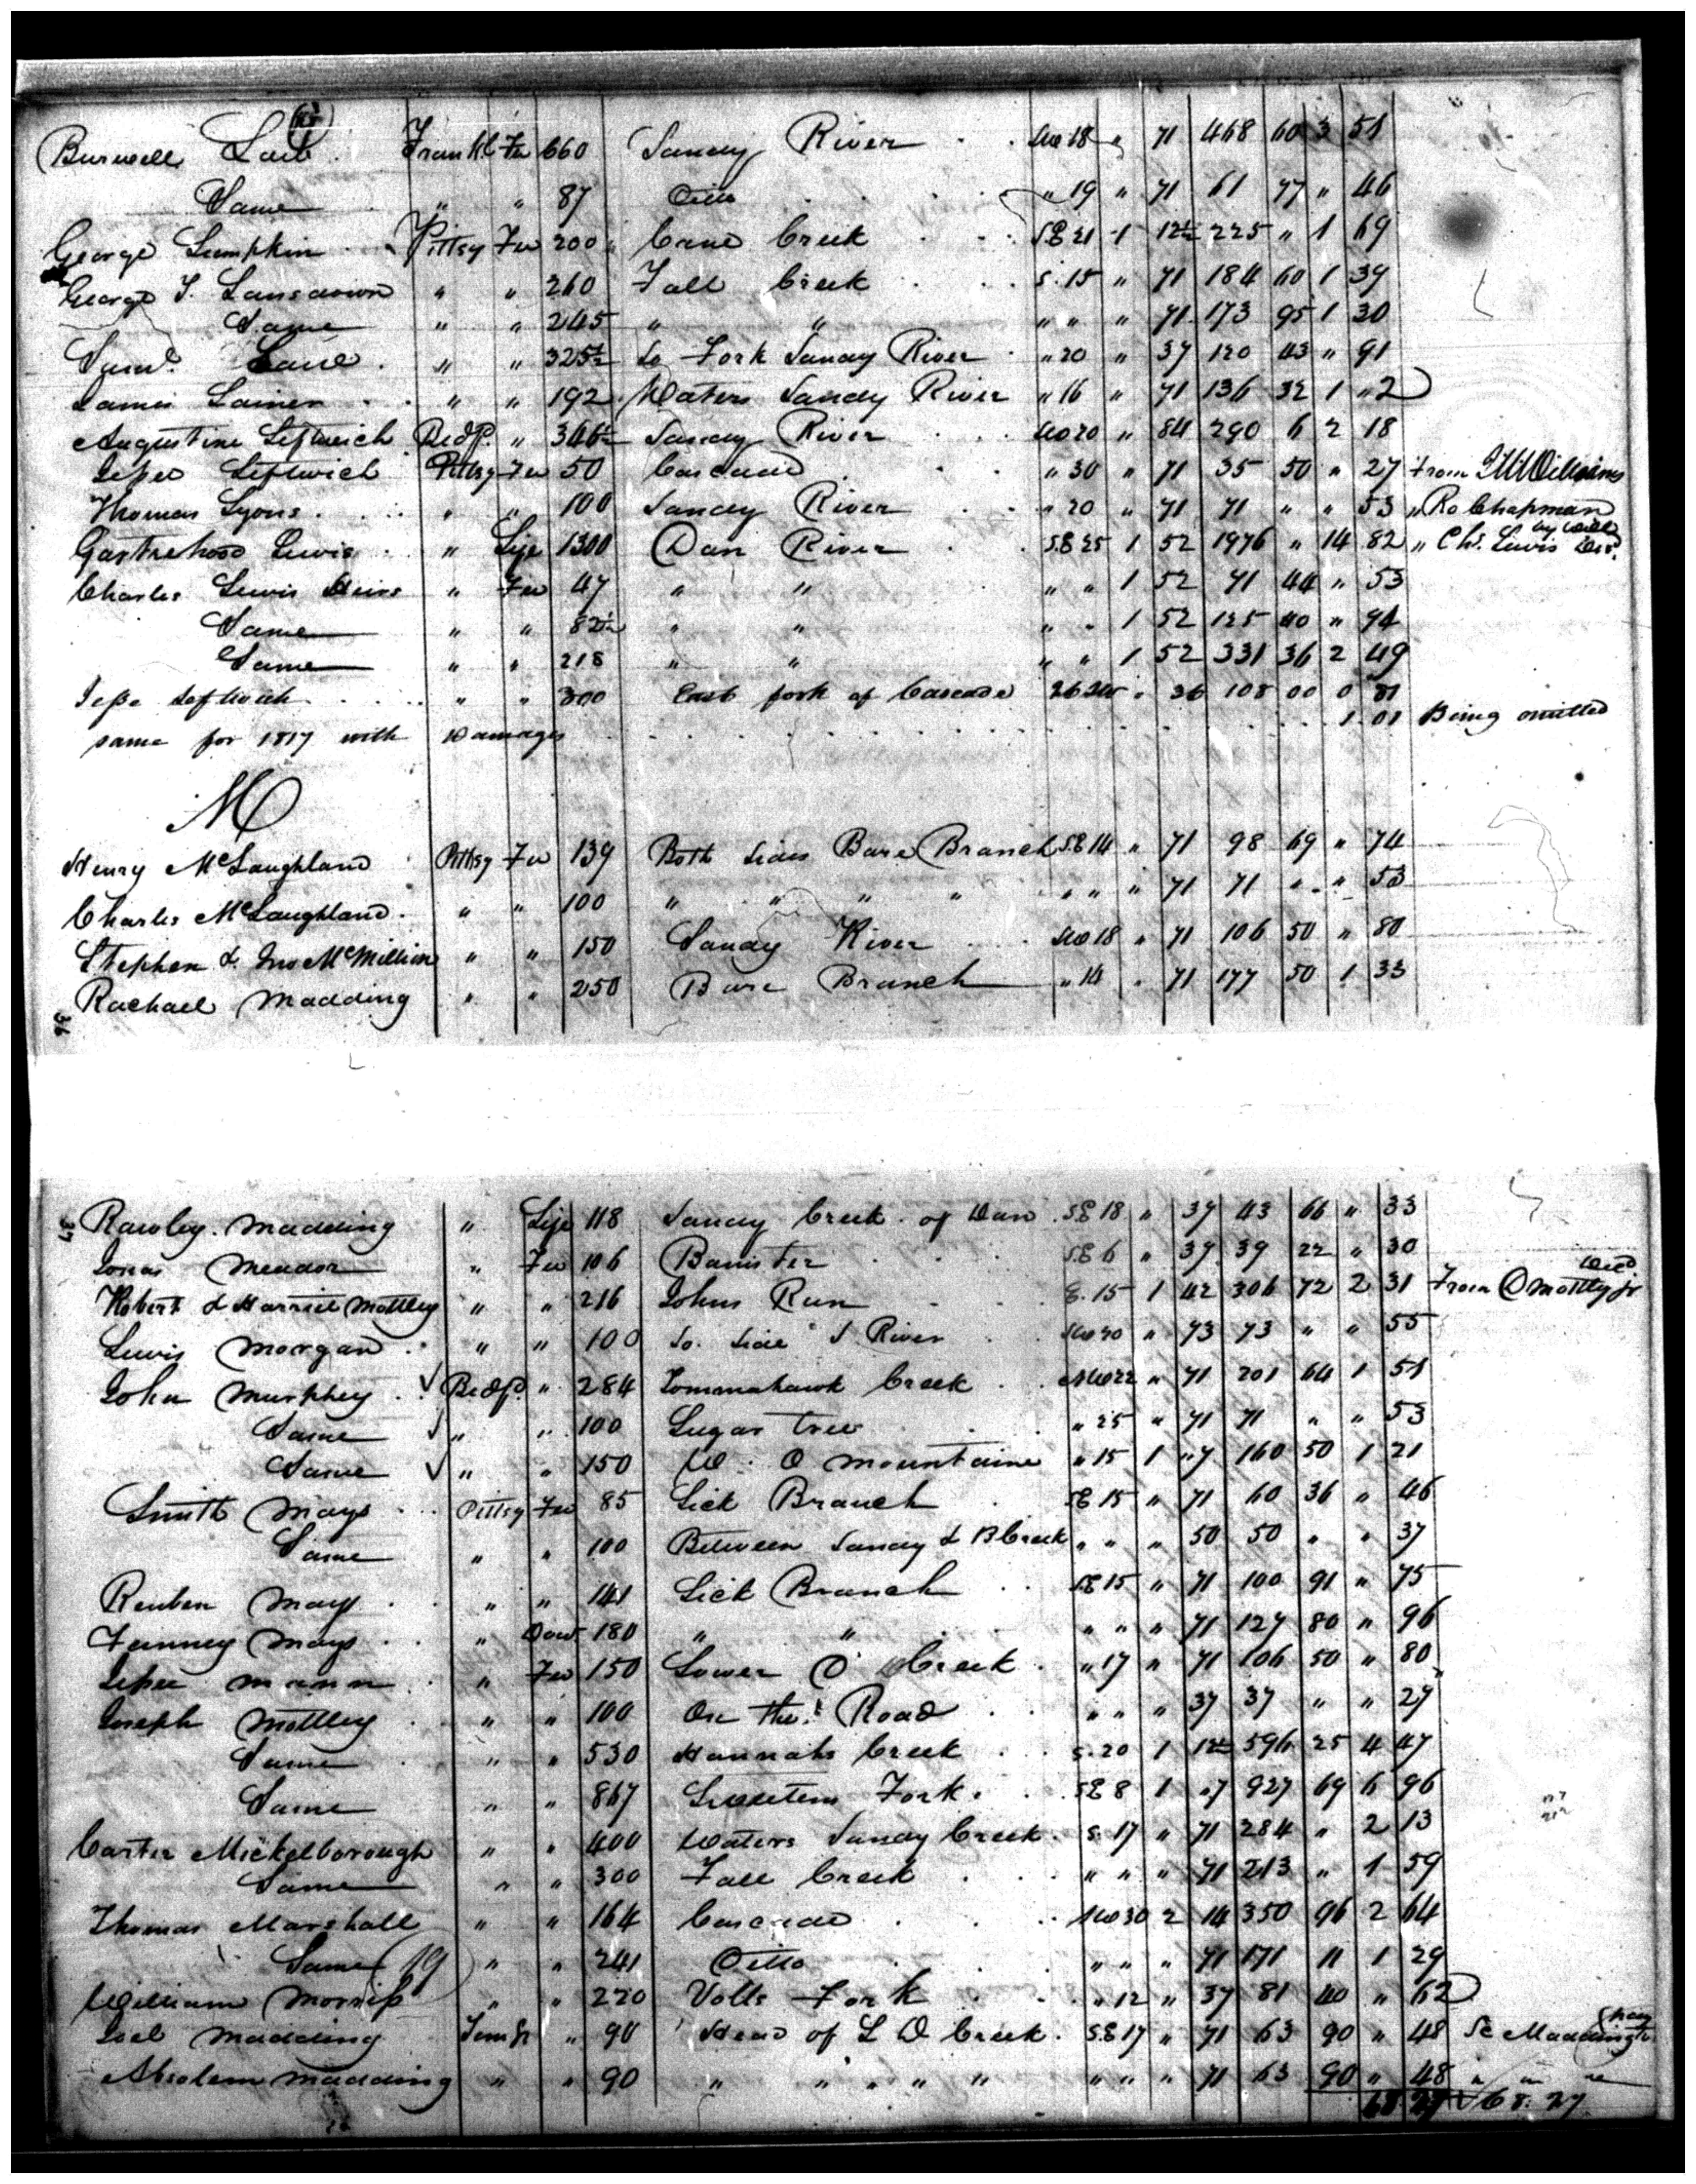 Burwell Law . Frankl Fee 660 Sandy River . . SW 18 " 71 468 60 3 51
Same " " 87 Ditto . . . " 19 " 71 61 77 " 46
George Lumpkin . . Pittsy Fee 200 Cane Creek . . SE 21 1 12½ 225 " 1 69
George T. Lansdown " " 260 Fall Creek . . S. 15 " 71 184 60 1 39
Same " " 245 " " " " " 71 173 95 1 30
Saml. Lane . " " 325½ So Fork Sandy River . " 20 " 37 120 43 " 91
James Lainer . . " " 192 Waters Sandy River " 16 " 71 136 32 1 " 2
Augustine Leftwich Bedf. " 346½ Sandy River . . . SW 20 " 84 290 6 2 18
Jesse Leftwich Pittsy Fee 50 Cascade . . . " 30 " 71 35 50 " 27 from Williams
Thomas Lyons . . . " " 100 Sandy River . . " 20 " 71 71 " " 53 " Ro Chapman
by will
Lewis . " Life 1300 Dan River . . SE 25 1 52 1976 " 14 82 " Chs. Lewis Decd.
Charles Lewis Heirs " Fee 47 " " " " 1 52 71 44 " 53
Same " " 82½ " " " " 1 52 125 40 " 94
Same " " 218 " " " " 1 52 331 36 2 49
Jesse Leftwich . . . . " " 300 East fork of Cascade 26 SW " 36 108 00 0 81
same for 1817 with Damages . . . . . . . . . . 1. 01 Being omitted
M
Henry McLaughland . Pittsy Fee 139 Both sides Bare Branch SE 14 " 71 98 69 " 74
Charles McLaughland . " " 100 " " " " " " " 71 71 " " 53
Stephen & Jno McMillion " " 150 Sandy River . . SW 18 " 71 106 50 " 80
Rachael Madding " " 250 Bare Branch " 14 " 71 177 50 1 33
36
37
Rawley Madding " Life 118 Sandy Creek of Dan . SE 18 " 37 43 66 " 33
Jonas Meador " Fee 106 Banister . . SE 6 " 37 39 22 " 30
Decd
Robert & Harriel Mottley " " 216 Johns Run . . . E. 15 1 42 306 72 2 31 From D Mottley jr
Lewis Morgan . . " " 100 So. side S River . . " 73 73 " " 55
John Murphey . √ Bedf. " 284 Tommahawk Creek . . NW 22 " 71 201 64 1 51
Same √ " " 100 Sugar tree . . . " 25 " 71 71 " " 53
Same √ " " 150 W. O mountaine " 15 1 " 7 160 50 1 21
Smith Mays . . . Pittsy Fee 85 Lick Branch . SE 15 " 71 60 36 " 46
Same " " 100 Between Sandy & B Creek " " " 50 50 " " 37
Reuben Mays . . " " 141 Lick Branch . . SE 15 " 71 100 91 " 75
Fanney Mays . . " Dow. 180 " " . . " " " 71 127 80 " 96
Jesse Mann . . " Fee 150 Lower D Creek . " 17 " 71 106 50 " 80
Joseph Mottley . . " " 100 On the Road . . " " " 37 37 " " 27
Same " " 530 Hannahs Creek . . S. 20 1 12½ 596 25 4 47
Same " " 867 Fork . . SE 8 1 " 7 927 69 6 96
Carter Mickelborough " " 400 Waters Sandy Creek . S. 17 " 71 284 " 2 13
Same " " 300 Fall Creek . . . " " " 71 213 " 1 59
Thomas Marshall " " 164 Cascade . . . NW 30 2 14 350 96 2 64
Same " " 241 Ditto . . . " " " 71 171 11 1 29
William Morriss " " 220 Volts Fork . . . " 12 " 37 81 40 " 62
Joel Madding " 90 Head of L D Creek . SE 17 " 71 63 90 " 48
Absolem Madding " " 90 " " " " " " " " 71 63 90 " 48 " " "
68 27 √ 68. 27